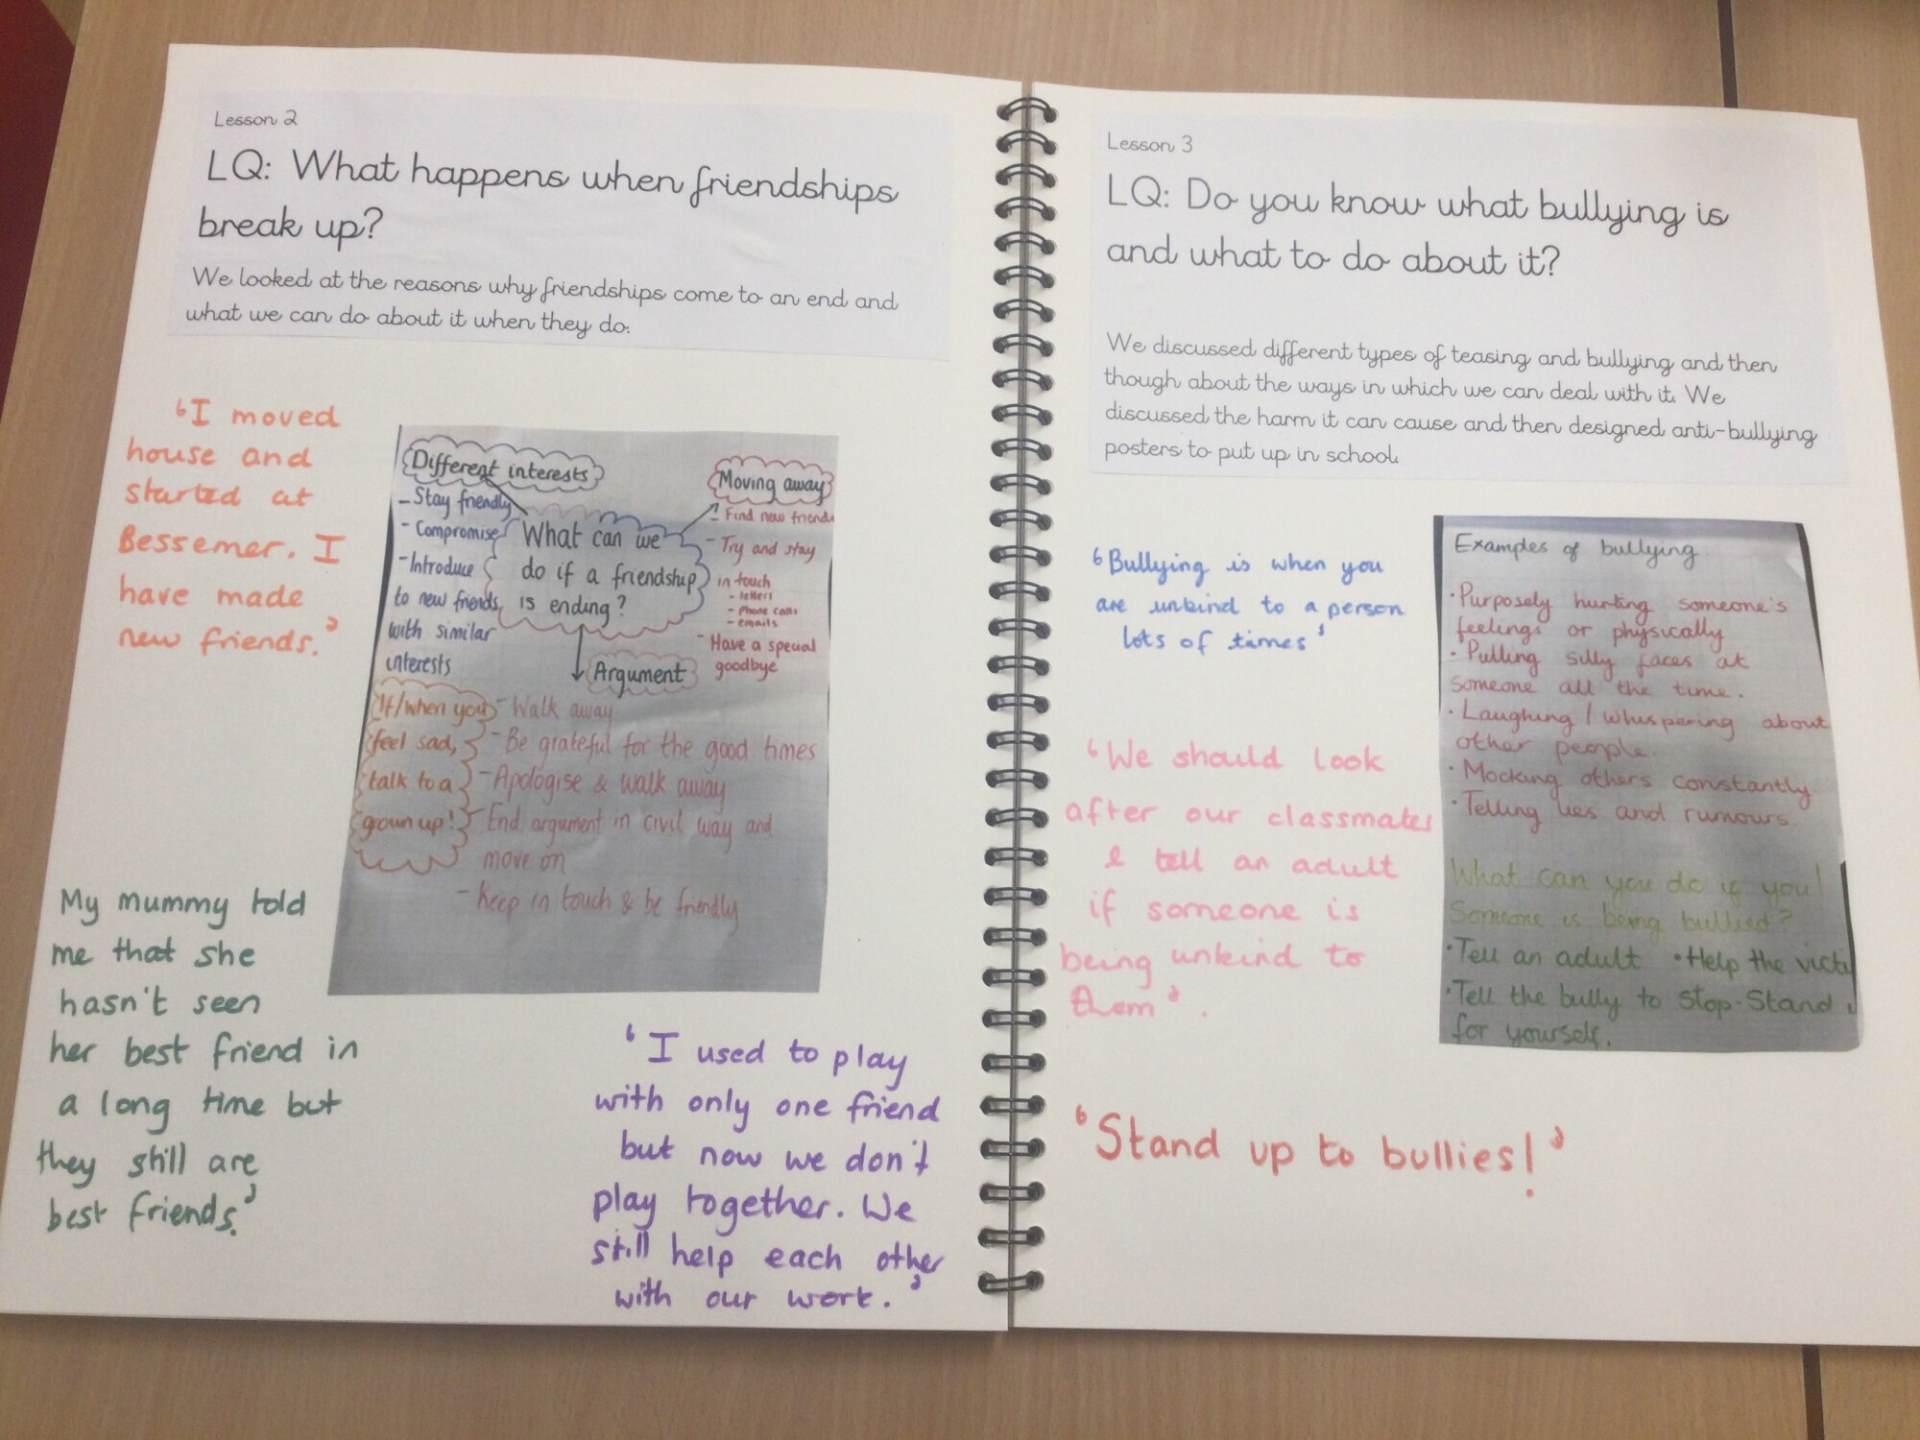 Lesson 2
LQ: What happens when friendships
break up?
We looked at the reasons why friendships come to an end and
what we can do about it when they do.
'I moved
house and
started at
Bessemer. I
have made
new friends.'
Different interests
- Stay friendly
- Compromise
- Introduce
to new friends
with similar
interests
What can we
do if a friendship
is ending?
Moving away
- Find new friends
- Try and stay
in touch
- letters
- Phone calls
- emails
- Have a special
goodbye
Argument
- Walk away
- Be grateful for the good times
- Apologise & walk away
- End argument in civil way and
move on
- Keep in touch & be friendly
If/when you
feel sad,
talk to a
grown up!
My mummy told
me that she
hasn't seen
her best friend in
a long time but
they still are
best friends.'
'I used to play
with only one friend
but now we don't
play together. We
still help each other
with our work.'
Lesson 3
LQ: Do you know what bullying is
and what to do about it?
We discussed different types of teasing and bullying and then
though about the ways in which we can deal with it. We
discussed the harm it can cause and then designed anti-bullying
posters to put up in school.
'Bullying is when you
are unkind to a person
lots of times'
'We should look
after our classmates
& tell an adult
if someone is
being unkind to
them'.
Examples of bullying
· Purposely hurting someone's
feelings or physically
· Pulling silly faces at
someone all the time.
· Laughing / whispering about
other people.
· Mocking others constantly
· Telling lies and rumours.
What can you do if you/
Someone is being bullied?
· Tell an adult · Help the
· Tell the bully to stop · Stand
for yourself.
'Stand up to bullies!'